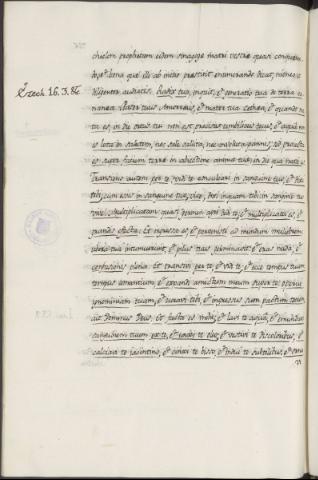 Ezech. 16. 3. &c.
chielem prophetam eidem synagogæ matri vestræ quasi
bona quæ illi ab initio præstitit enumerando dicat,
diligenter audiatis. Radix tua, inquit, & generatio tua de terra
nanæa: Pater tuus Amorræus, & mater tua Cethæa, & quando na
ta es, in die ortus tui non est præcisus umbilicus tuus, & aqua non
es lota in salutem, nec sale salita, nec involuta pannis, sed proiecta
es super faciem terræ in abiectione animæ tuæ, in die qua nata es.
Transiens autem per te vidi te conculcari in sanguine tuo, & dixi
tibi, cum esses in sanguine tuo, vive, dixi inquam tibi in sanguine tuo
vive. Multiplicatam quasi germen agri dedi te, & multiplicata es, &
grandis effecta: Et ingressa es, & pervenisti ad mundum muliebrem
ubera tua intumuerunt, & pilus tuus germinavit, & eras nuda, &
confusione plena: Et transivi per te, & vidi te, & ecce tempus tuum
tempus amantium, & expandi amictum meum super te, & operui
ignominiam tuam, & iuravi tibi, & ingressus sum pactum tecum
ait Dominus Deus, Et facta es mihi, & lavi te aqua, & emundavi
sanguinem tuum ex te, & unxi te oleo, & vestivi te discoloribus, &
calceavi te ianthino, & cinxi te bysso, & indui te subtilibus, &